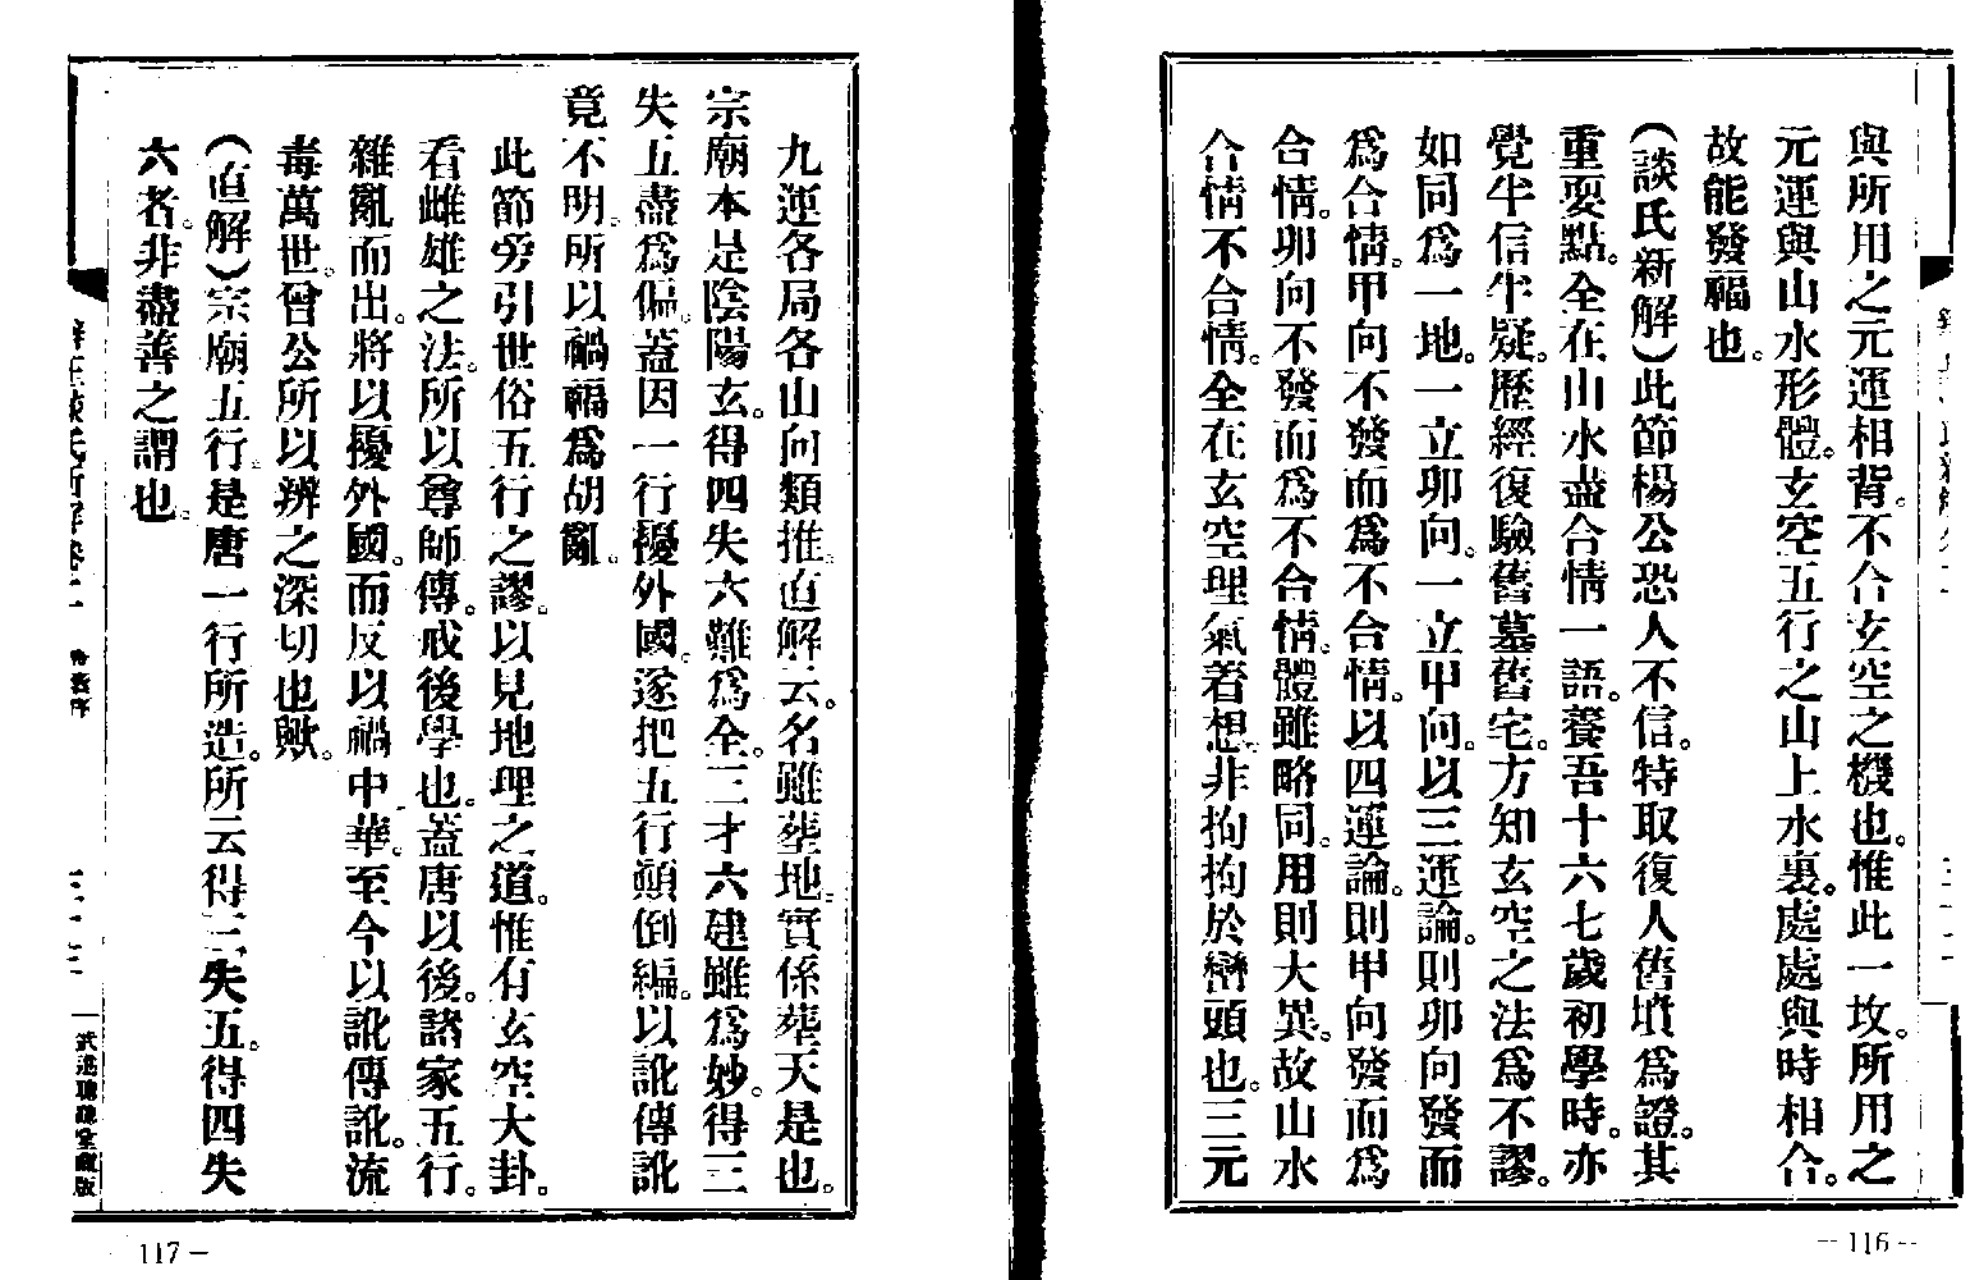 與所用之元運相背。不合玄空之機也。惟此一坟。所用之
元運與山水形體。玄空五行之山上水裏。處處與時相合。
故能發福也。
（談氏新解）此節楊公恐人不信。特取復人舊墳爲證。其
重要點。全在山水盡合情一語。養吾十六七歲初學時。亦
覺半信半疑。歷經復驗舊墓舊宅。方知玄空之法爲不謬。
如同爲一地。一立卯向。一立甲向。以三運論。則卯向發而
爲合情。甲向不發而爲不合情。以四運論。則甲向發而爲
合情。卯向不發而爲不合情。體雖略同。用則大異。故山水
合情不合情。全在玄空理氣着想。非拘拘於巒頭也。三元
-- 116 --
九運各局各山向類推。直解云。名雖葬地。實係葬天是也。
宗廟本是陰陽玄。得四失六難爲全。三才六建雖爲妙。得三
失五盡爲偏。蓋因一行擾外國。遂把五行顛倒編。以訛傳訛
竟不明。所以禍福爲胡亂。
此節旁引世俗五行之謬。以見地理之道。惟有玄空大卦。
看雌雄之法。所以尊師傳。戒後學也。蓋唐以後。諸家五行。
雜亂而出。將以擾外國。而反以禍中華。至今以訛傳訛。流
毒萬世。曾公所以辨之深切也歟。
（直解）宗廟五行。是唐一行所造。所云得三失五。得四失
六者。非盡善之謂也。
117 –